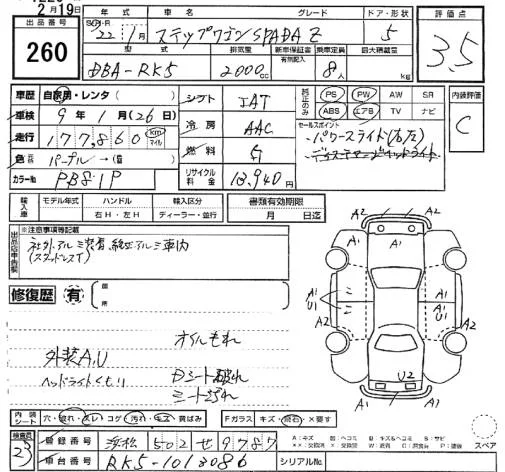 2月19日
出品番号 260
年式 22年 1月 グレード ステップワゴンSPADA Z ドア・形状 5
型式 DBA-RK5 排気量 2000cc 新車保証書 有無記入 乗車定員 8人 最大積載量 kg
評価点 3.5
車歴 自家用・レンタ( )
車検 9年 1月(26日)
走行 177,860 km マイル
色 パープル→( )
カラーNo. PB81P
シフト IAT
冷房 AAC
燃料 ガ
リサイクル料金 13,940円
純正のみ PS PW AW SR
ABS エアB TV ナビ
セールスポイント
・パワースライド(右左)
内装評価 C
輸入車 モデル年式 ハンドル 右H・左H 輸入区分 ディーラー・並行
書類有効期限 月 日迄
出品店申告欄 ※注意事項等記載
社外アルミ装着、純正アルミ車内
(スタッドレス)
修復歴 有
オイルもれ
外装A,U
ヘッドライトくもり
Dシート破れ
シート汚れ
A2 A1 A2
A1 A1
U1 U1
A2 U2 A2
スペア
内装シート 穴・破れ・スレ・コゲ・汚れ・キズ・黄ばみ
Fガラス キズ・飛石・×要す
検査員 23
登録番号 浜松 502 せ 9787
車台番号 RK5-1013086
シリアルNo.